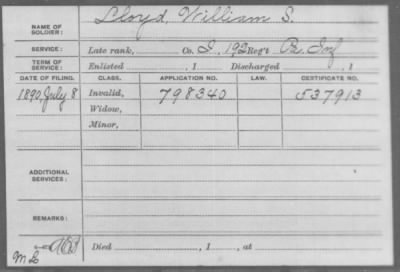 NAME OF SOLDIER: Lloyd, William S.
SERVICE: Late rank, Co. I, 192 Reg't Pa. Inf
TERM OF SERVICE: Enlisted , 1 Discharged , 1
DATE OF FILING. CLASS. APPLICATION NO. LAW. CERTIFICATE NO.
1890, July 8 Invalid, 798340 537913
Widow,
Minor,
ADDITIONAL SERVICES:
REMARKS:
Died , 1 , at